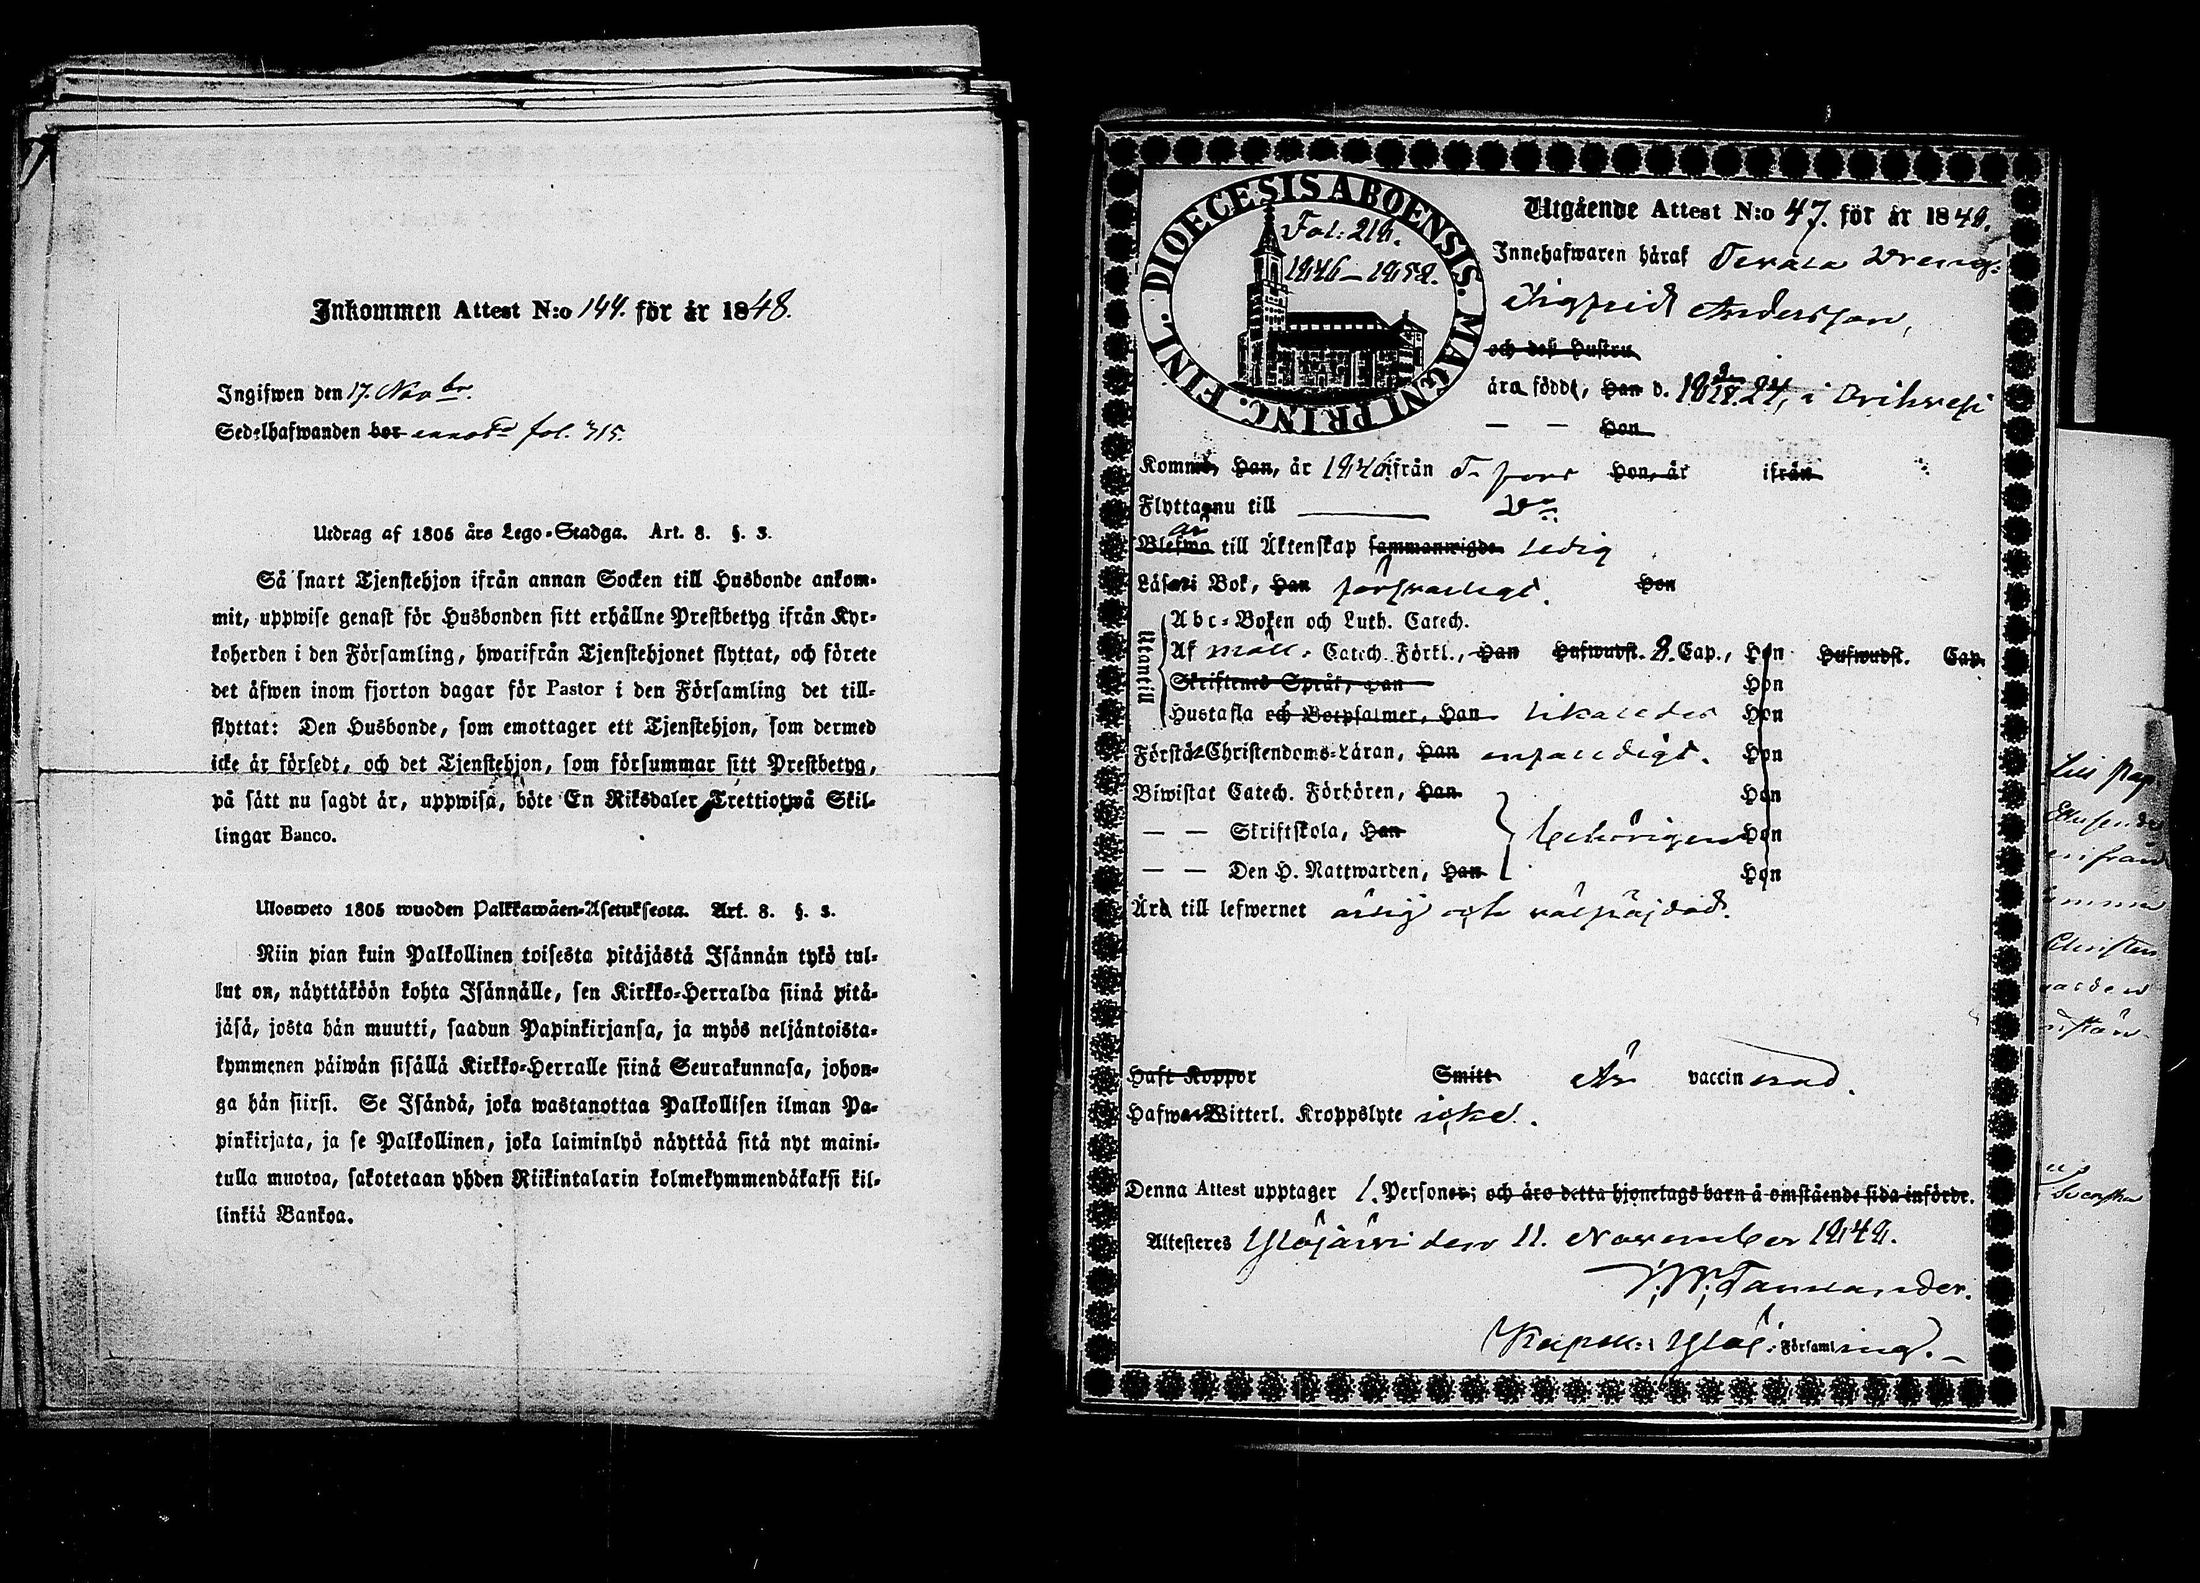 Inkommen Attest N:o 144. för år 1848.
Ingifwen den 17. Novbr.
Sedelhafwanden bor annot. fol. 315.
Utdrag af 1805 års Lego-Stadga. Art. 8. §. 3.
Så snart Tjenstehjon ifrån annan Socken till Husbonde ankom-
mit, uppwise genast för Husbonden sitt erhållne Prestbetyg ifrån Kyr-
koherden i den Församling, hwarifrån Tjenstehjonet flyttat, och förete
det äfwen inom fjorton dagar för Pastor i den Församling det till-
flyttat: Den Husbonde, som emottager ett Tjenstehjon, som dermed
icke är försedt, och det Tjenstehjon, som försummar sitt Prestbetyg,
på sätt nu sagdt är, uppwisa, böte En Riksdaler Trettiotwå Skil-
lingar Banco.
Ulosweto 1805 wuoden Palkkawäen-Asetuksesta. Art. 8. §. 3.
Niin pian kuin Palkollinen toisesta pitäjästä Isännän tykö tul-
lut on, näyttäköön kohta Isännälle, sen Kirkko-Herralda siinä pitä-
jäsä, josta hän muutti, saadun Papinkirjansa, ja myös neljäntoista-
kymmenen päiwän sisällä Kirkko-Herralle siinä Seurakunnasa, johon-
ga hän siirsi. Se Isändä, joka wastanottaa Palkollisen ilman Pa-
pinkirjata, ja se Palkollinen, joka laiminlyö näyttää sitä nyt maini-
tulla muotoa, sakotetaan yhden Riikintalarin kolmekymmendäkaksi kil-
linkiä Bankoa.
DIOECESIS ABOENSIS. MAGNI PRINC. FINL.
Fol: 216.
1846–1852.
Utgående Attest N:o 47. för år 1848.
Innehafwaren häraf Dräng.
Sigfrid Andersson,
och des Hustru
äro födde, Han d. 18 24, i Orihvesi
— — Hon
Komne, Han, år 1846 ifrån T. fors Hon, år ifrån
Flytta nu till — Do
Blefwo är till Äktenskap sammanwigde ledig
Läsa i Bok, Han försvarligt. Hon
Utantill
Abc-Boken och Luth. Catech.
Af Catech. Förkl., Han Hufwudst. 8. Cap., Hon Hufwudst. Cap.
Skriftenes Språk, Han Hon
Hustafla och Botpsalmer, Han likaledes Hon
Förstå Christendoms-Läran, Han enfaldigt. Hon
Biwistat Catech. Förhören, Han Hon
— — Skriftskola, Han behörigen Hon
— — Den H. Nattwarden, Han Hon
Äro till lefwernet ärlig och välfräjdad.
Haft Koppor Smitt Är vaccinerad.
Hafwa Witterl. Kroppslyte icke.
Denna Attest upptager 1. Personer; och äro detta hjonelags barn å omstående sida införde.
Attesteres Ylöjärvi den 11. November 1848.
Kapell: i Ylöj: Församling.